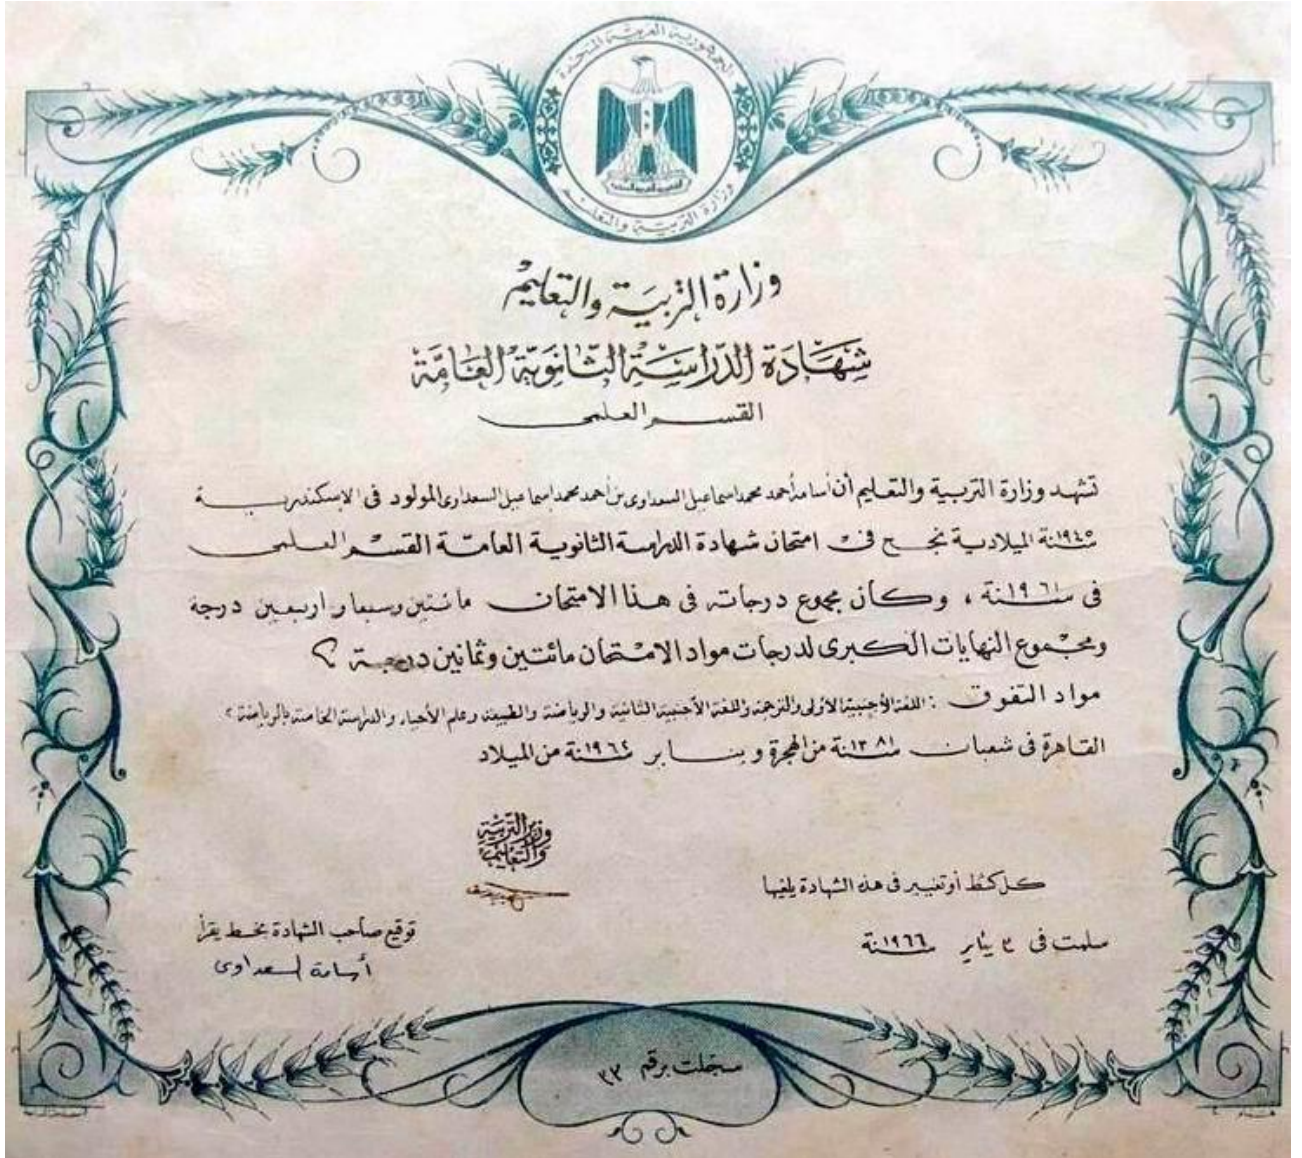 الجمهورية العربية المتحدة
وزارة التربية والتعليم
وزارة التربية والتعليم
شهادة الدراسة الثانوية العامة
القسم العلمى
تشهد وزارة التربية والتعليم أن أسامه أحمد محمد اسماعيل السعداوى بن أحمد محمد إسماعيل السعداوى المولود فى الاسكندرية
سنة ١٩٤٥ الميلادية نجح فى امتحان شهادة الدراسة الثانوية العامة القسم العلمى
فى سنة ١٩٦١ ، وكان مجموع درجاته فى هذا الامتحان مائتين وسبعا واربعين درجة
ومجموع النهايات الكبرى لدرجات مواد الامتحان مائتين وثمانين درجة
مواد التفوق : اللغة الأجنبية الأولى والترجمة واللغة الأجنبية الثانية والرياضة والطبيعة وعلم الأحياء والدراسة الخاصة بالرياضة
القاهرة فى شعبان سنة ١٣٨١ من الهجرة و يناير سنة من الميلاد
وزير التربية
والتعليم
كل كشط أو تغيير فى هذه الشهادة يلغيها
توقيع صاحب الشهادة بخط يقرأ
سلمت فى يناير سنة ١٩٦٦
أسامة السعداوى
سجلت برقم ٣٣